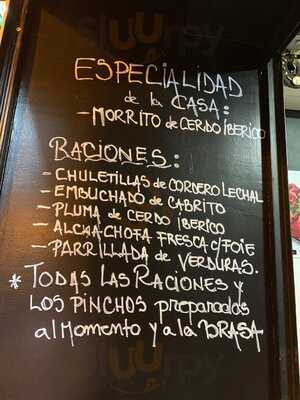 ESPECIALIDAD
de la CASA:
- MORRITO de CERDO IBERICO
RACIONES:
- CHULETILLAS de CORDERO LECHAL
- EMBUCHADO de CABRITO
- PLUMA de CERDO IBERICO
- ALCHACHOFA FRESCA c/FOIE
- PARRILLADA de VERDURAS.
* TODAS LAS RACIONES y
LOS PINCHOS preparados
al MOMENTO y a la BRASA